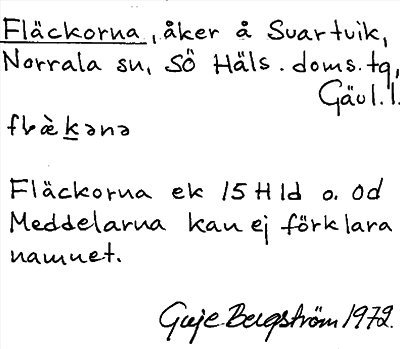 Fläckorna, åker å Svartvik,
Norrala sn, SÖ Häls. doms.tg,
Gävl.l.
flæ̀kənə
Fläckorna ek 15 H ld o. od
Meddelarna kan ej förklara
namnet.
Guje Bergström 1972.